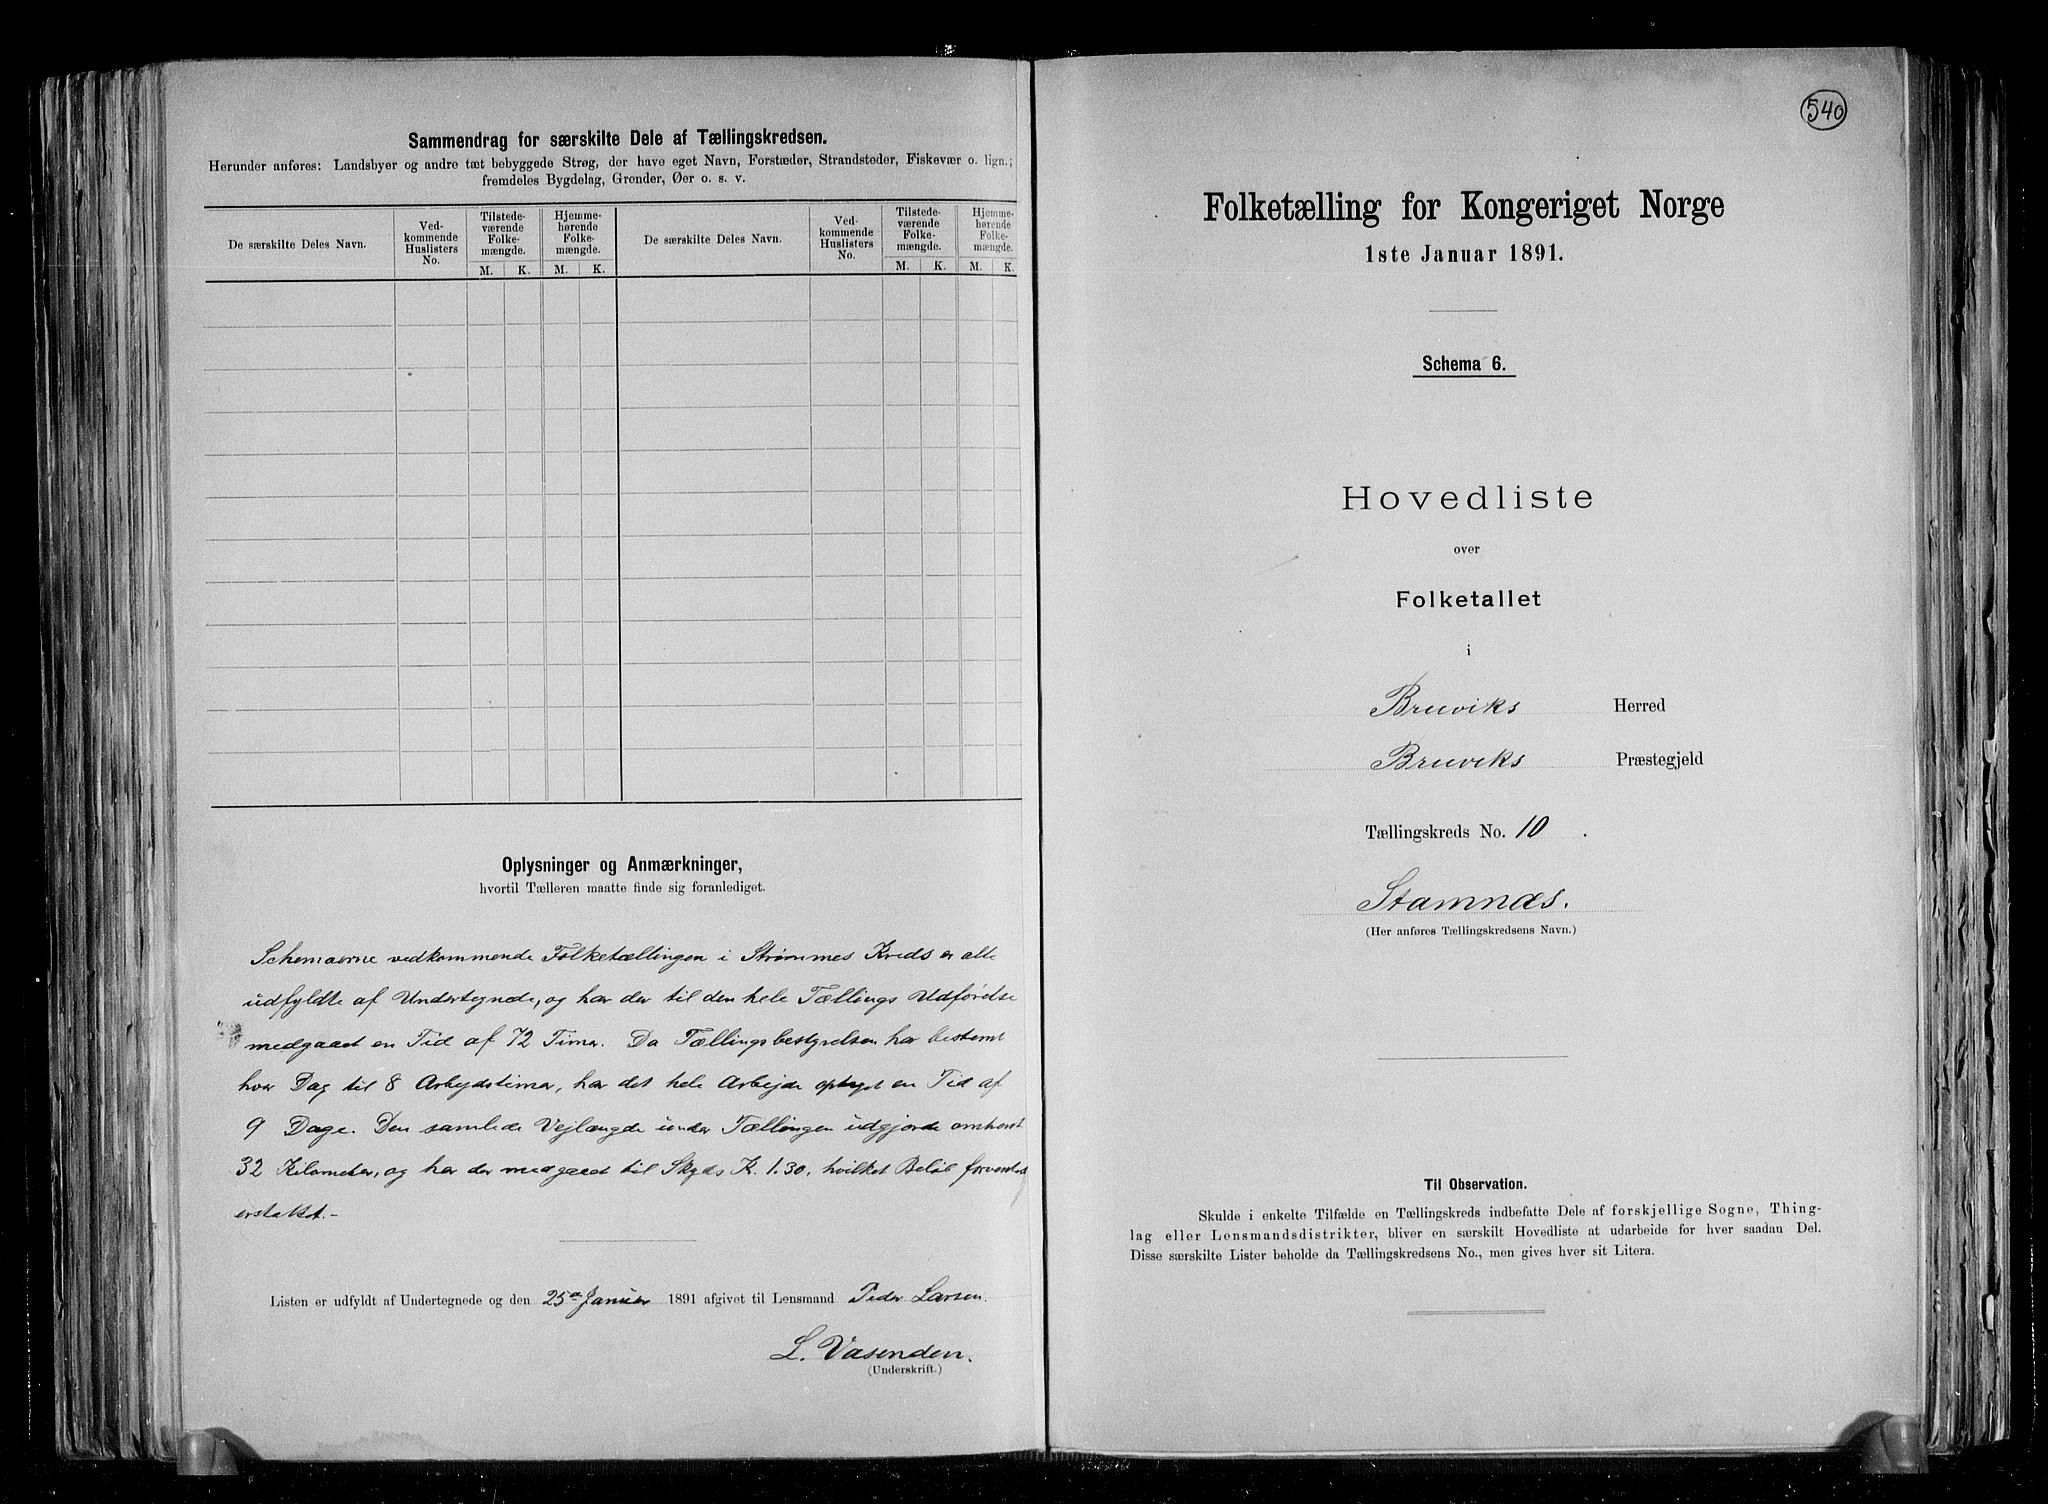 Sammendrag for særskilte Dele af Tællingskredsen.
Herunder anføres: Landsbyer og andre tæt bebyggede Strøg, der have eget Navn, Forstæder, Strandsteder, Fiskevær o. lign.;
fremdeles Bygdelag, Grender, Øer o. s. v.
De særskilte Deles Navn.
Ved-
kommende
Huslisters
No.
Tilstede-
værende
Folke-
mængde.
M. K.
Hjemme-
hørende
Folke-
mængde.
M. K.
De særskilte Deles Navn.
Ved-
kommende
Huslisters
No.
Tilstede-
værende
Folke-
mængde.
M. K.
Hjemme-
hørende
Folke-
mængde.
M. K.
Oplysninger og Anmærkninger,
hvortil Tælleren maatte finde sig foranlediget.
Schemaerne vedkommende Folketællingen i Strømmes Kreds er alle
udfyldte af Undertegnede, og har der til den hele Tællings Udførelse
medgaaet en Tid af 72 Timer. Da Tællingsbestyrelsen har bestemt
hver Dag til 8 Arbejdstimer, har det hele Arbejde optaget en Tid af
9 Dage. Den samlede Vejlængde under Tællingen udgjorde omkring
32 Kilometer, og har der medgaaet til Skyds K. 1.30, hvilket Beløb forventes
erstattet.-
Listen er udfyldt af Undertegnede og den 25de Januar 1891 afgivet til Lensmand Peder Larsen.
L. Vasenden.
(Underskrift.)
540
Folketælling for Kongeriget Norge
1ste Januar 1891.
Schema 6.
Hovedliste
over
Folketallet
i
Bruviks Herred
Bruviks Præstegjeld
Tællingskreds No. 10 .
Stamnæs.
(Her anføres Tællingskredsens Navn.)
Til Observation.
Skulde i enkelte Tilfælde en Tællingskreds indbefatte Dele af forskjellige Sogne, Thing-
lag eller Lensmandsdistrikter, bliver en særskilt Hovedliste at udarbeide for hver saadan Del.
Disse særskilte Lister beholde da Tællingskredsens No., men gives hver sit Litera.